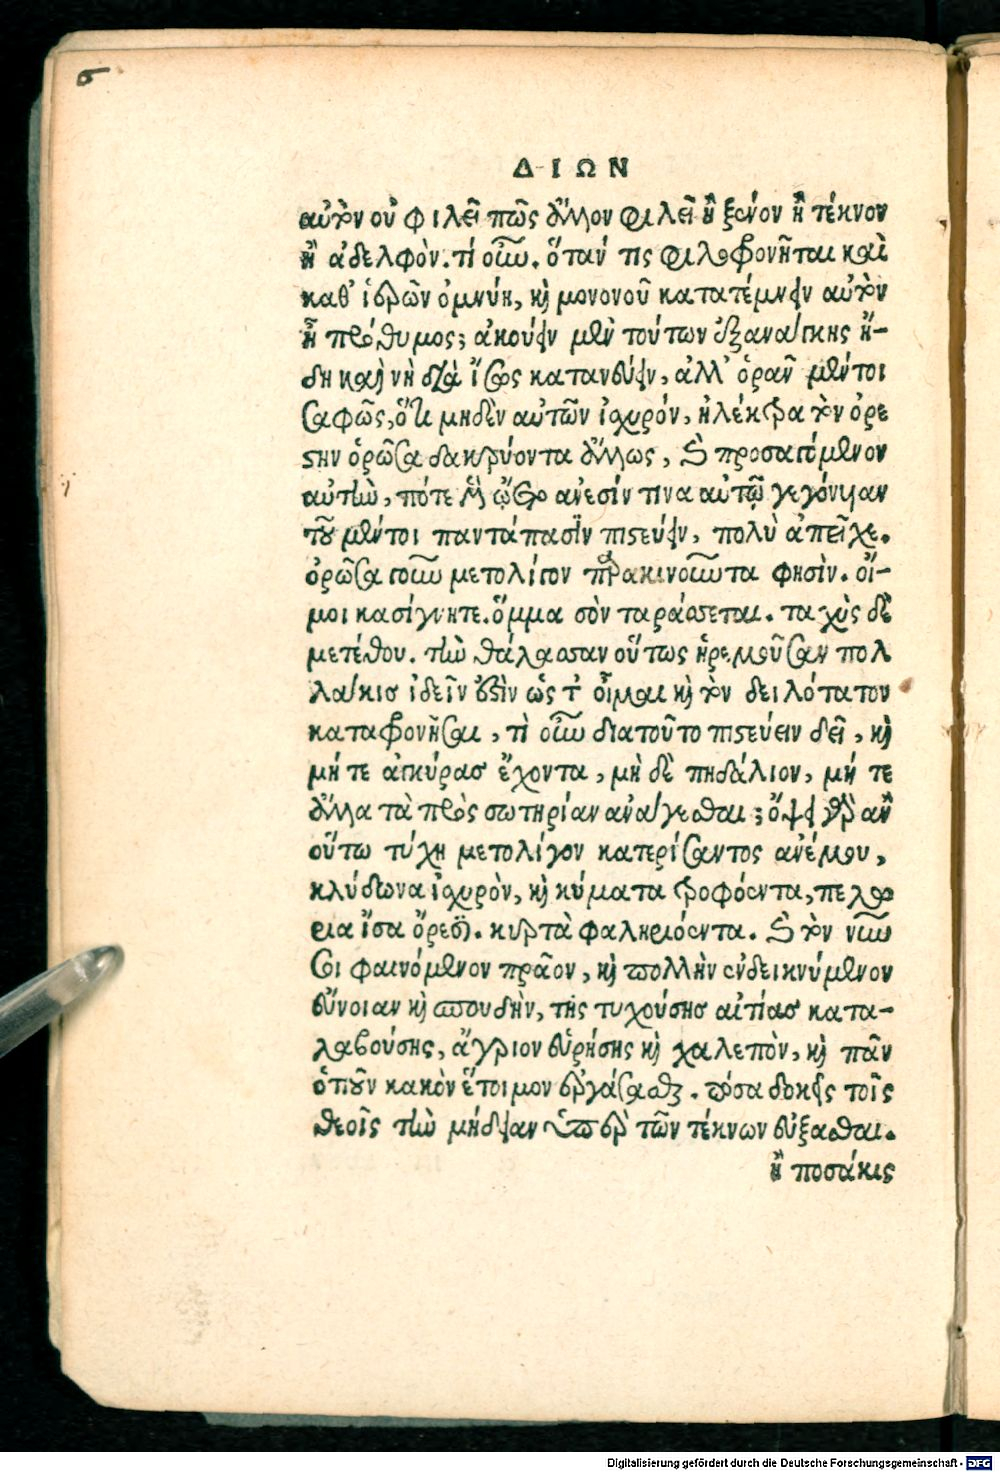 ΔΙΩΝ
αὐτὸν οὐ φιλεῖ πῶς ἄλλον φιλεῖ ἢ ξένον ἢ τέκνον
ἢ ἀδελφὸν. τί οὖν. ὅταν τις φιλοφρονῆται καὶ
καθ' ἱερῶν ὀμνύῃ, καὶ μονονοῦ κατατέμνειν αὐτὸν
ᾖ πρόθυμος; ἀκούειν μὲν τούτων ἐξανάγκης ἤ-
δη καὶ νὴ δία ἴσως κατανεύειν, ἀλλ' ὁρᾶν μέντοι
σαφῶς, ὅτι μηδὲν αὐτῶν ἰσχυρόν, ἠλέκτρα τὸν ὀρέ
στην ὁρῶσα δακρύοντα ἄλλως, καὶ προσαπτόμενον
αὐτὴν, πότε ᾧπερ ἀνεσίν τινα αὐτῷ γεγόνειαν
τοῦ μέντοι παντάπασιν πιστεύειν, πολὺ ἀπεῖχε.
ὁρῶσα γοῦν μετολίγον παρακινοῦντα φησὶν. οἴ-
μοι κασίγνητε. ὄμμα σὸν ταράσσεται. ταχὺς δὲ
μετέθου. τὴν θάλασσαν οὕτως ἠρεμοῦσαν πολ
λάκισ ἰδεῖν ἐστὶν ὡς τ' οἶμαι καὶ τὸν δειλότατον
καταφρονῆσαι, τὶ οὖν διατοῦτο πιστεύειν δεῖ, καὶ
μή τε ἀγκύρασ ἔχοντα, μὴ δὲ πηδάλιον, μή τε
ἄλλα τὰ πρὸς σωτηρίαν ἀνάγεσθαι; ὄψει γὰρ ἂν
οὕτω τύχῃ μετολίγον κατερίσαντος ἀνέμου,
κλύδωνα ἰσχυρὸν, καὶ κύματα τροφόεντα, πελώ
ρια ἴσα ὄρεσι. κυρτὰ φαληριόωντα. καὶ τὸν νῦν
σοι φαινόμενον πρᾶον, καὶ πολλὴν ἐνδεικνύμενον
εὔνοιαν καὶ σπουδὴν, τῆς τυχούσησ αἰτίασ κατα-
λαβούσης, ἄγριον εὑρήσης καὶ χαλεπὸν, καὶ πᾶν
ὁτιοῦν κακὸν ἕτοιμον ἐργάσασθαι. πόσα δοκεῖς τοῖς
θεοῖς τὴν μήδειαν ὑπὲρ τῶν τέκνων εὔξασθαι.
ἢ ποσάκις
Digitalisierung gefördert durch die Deutsche Forschungsgemeinschaft - DFG